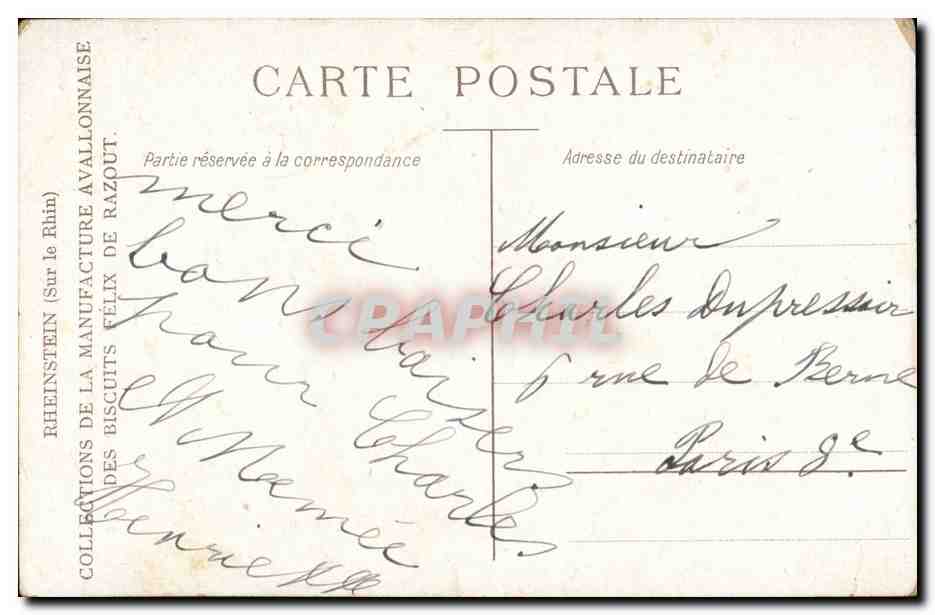 CARTE POSTALE
Partie réservée à la correspondance
Adresse du destinataire
RHEINSTEIN (Sur le Rhin)
COLLECTIONS DE LA MANUFACTURE AVALLONNAISE
DES BISCUITS FÉLIX DE RAZOUT.
merci
bons baisers
pour Charles
et Mamée
Henriette
Monsieur
Charles Dupressoir
6 rue de Berne
Paris 8e
CPAPHIL